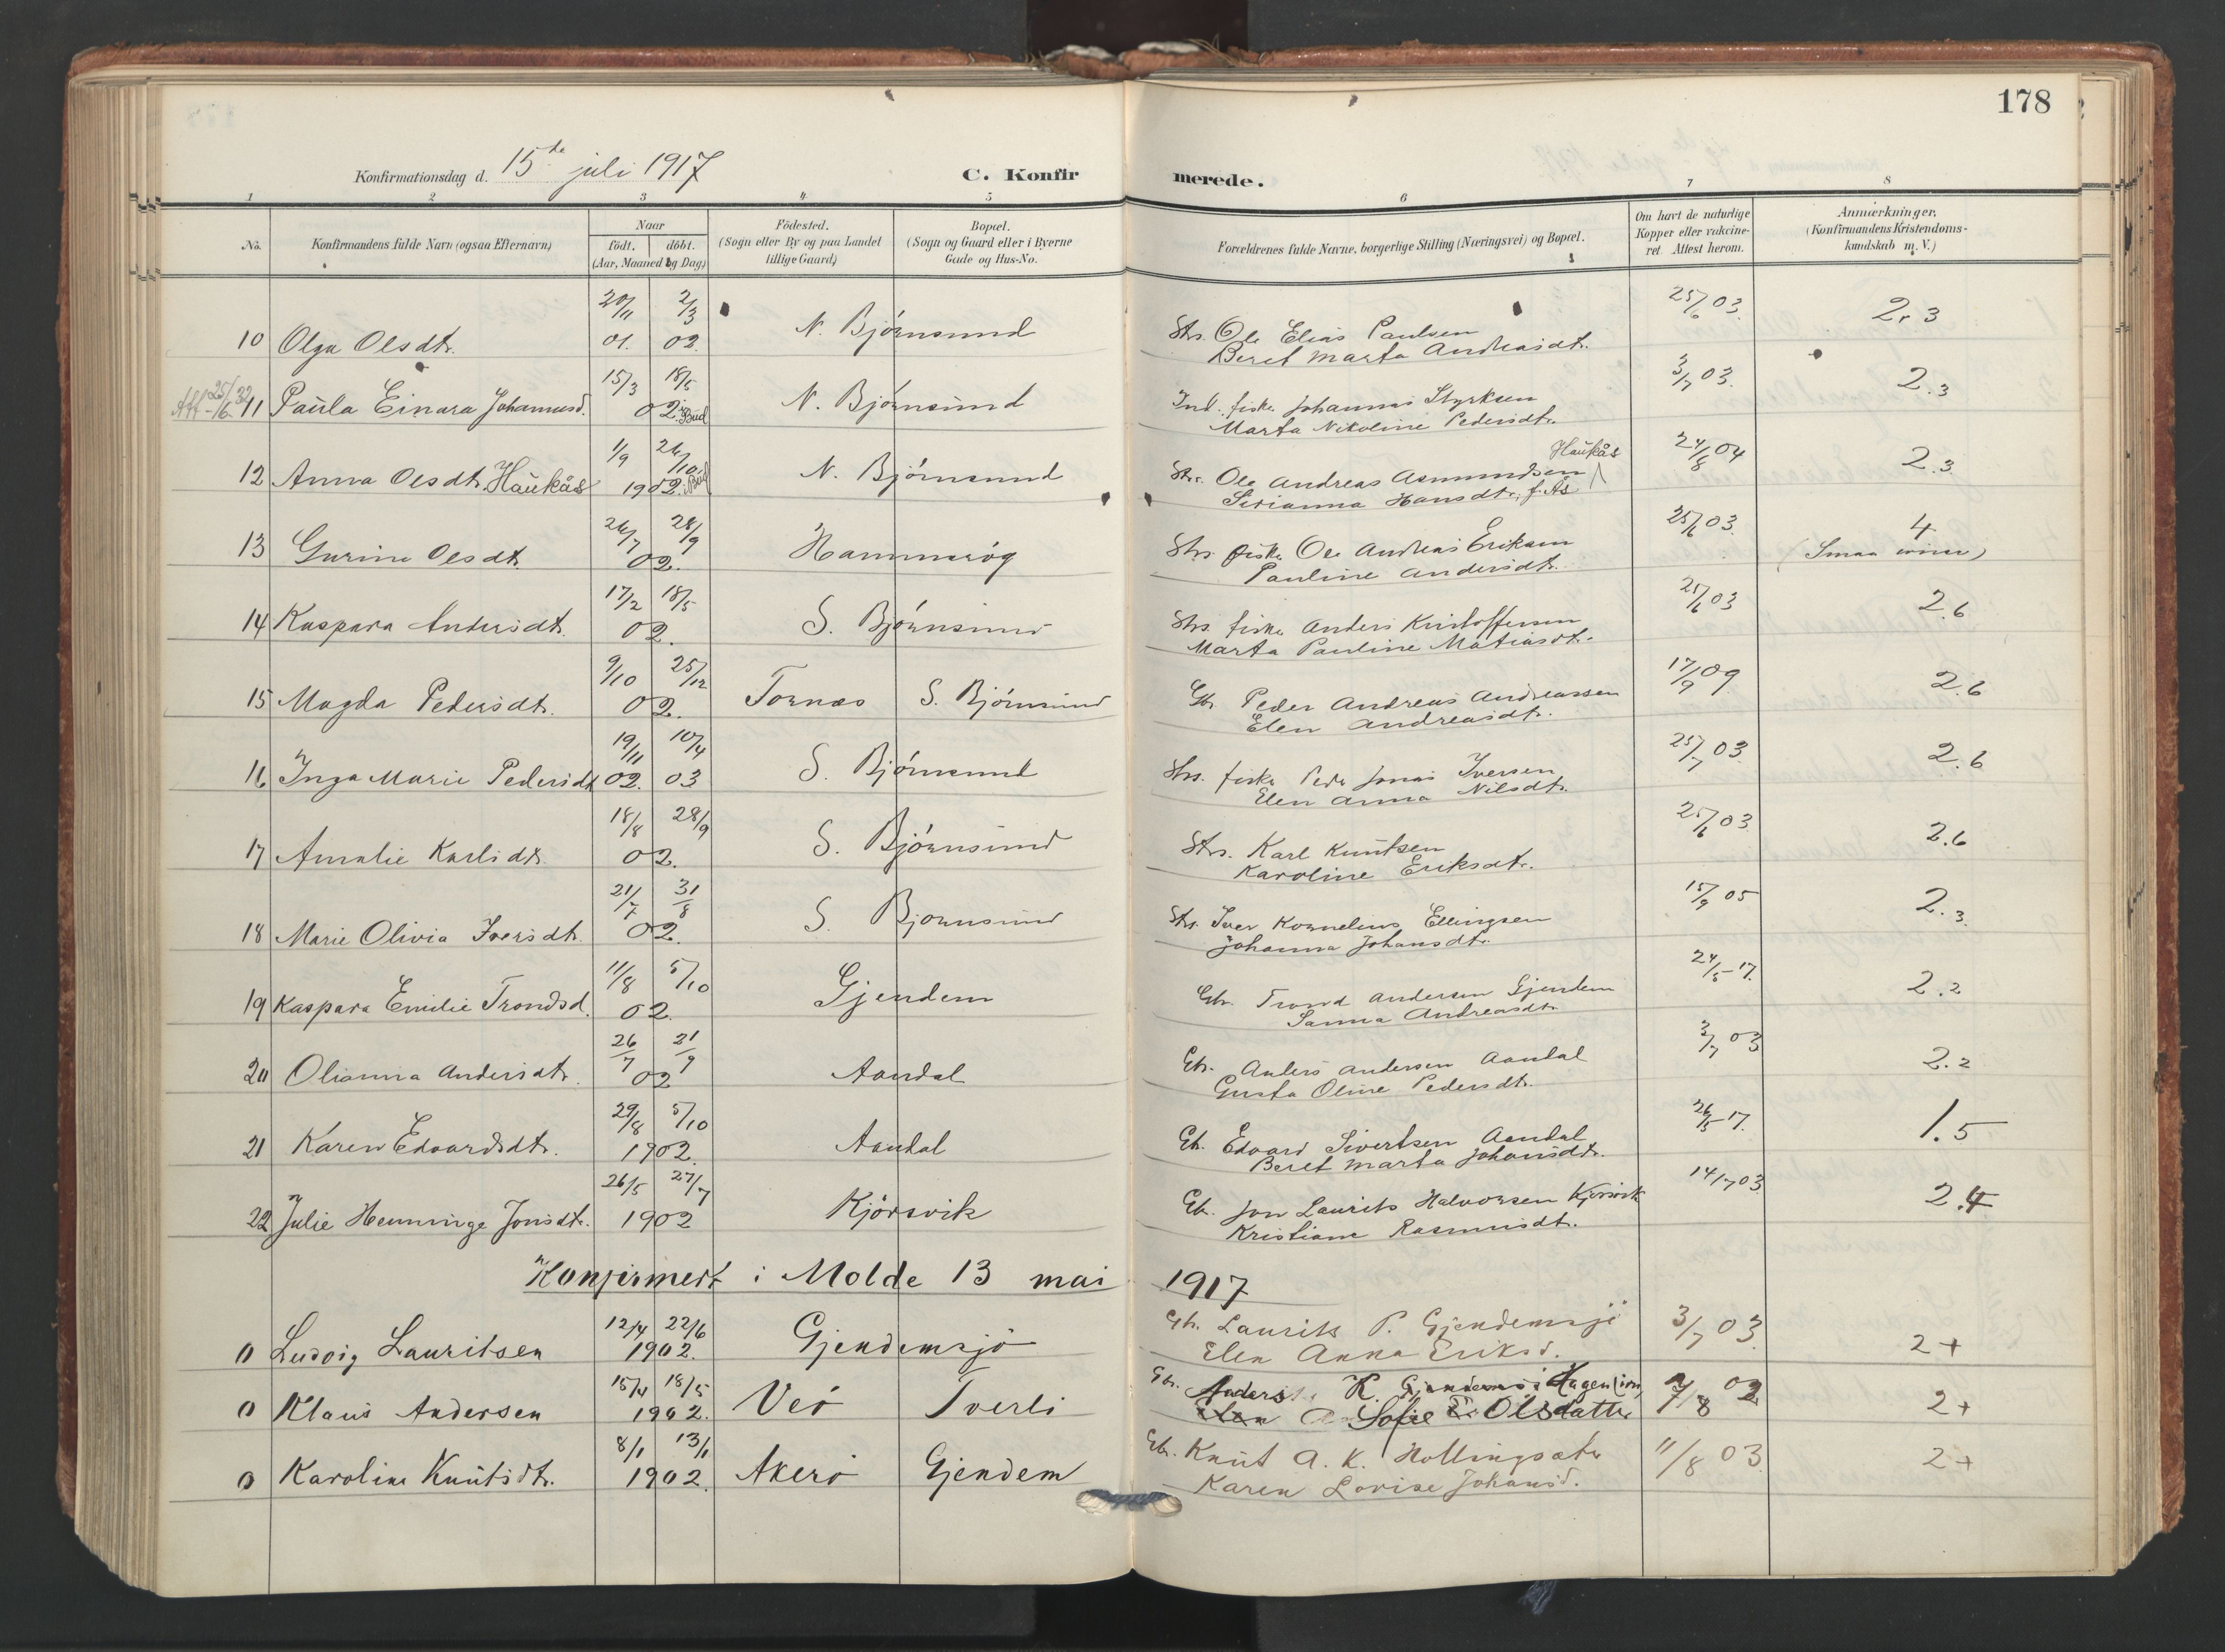 178
Konfirmationsdag d. 15de juli 1917
C. Konfir merede.
1 2 3 4 5 6 7 8
No.
Konfirmandens fulde Navn (ogsaa Efternavn)
Naar
födt. döbt.
(Aar, Maaned og Dag)
Födested.
(Sogn eller By og paa Landet
tillige Gaard)
Bopæl.
(Sogn og Gaard eller i Byerne
Gade og Hus-No.
Forældrenes fulde Navne, borgerlige Stilling (Næringsvei) og Bopæl.
Om havt de naturlige
Kopper eller vakcine-
ret. Attest herom.
Anmærkninger,
(Konfirmandens Kristendoms-
kundskab m. V.)
10 Olga Olsdtr. 20/11 01. 2/3 02 N. Björnsund Str. Ole Elias Paulsen 25/6 03. 2.3
Beret Marta Andreasdtr.
Att 25/6 32 11 Paula Einara Johannesd. 15/3 18/5 02. i Bud N. Björnsund Ind. fisker Johannes Styrksen 3/7 03. 2.3
Marta Nikoline Pedersdtr.
12 Anna Olsdtr. Haukås 1/9 26/10 1902. Bud N. Björnsund Str. Ole Andreas Asmundsen Haukås 24/8 04 2.3
Sirianna Hansdtr. f. Ås
13 Gurine Olsdtr. 26/7 28/9 02. Hammerög Str. fisker Ole Andreas Eriksen 25/6 03. 4
Pauline Andersdtr. (Smaa evner)
14 Kaspara Andersdtr. 17/2 18/5 02. S. Björnsund Str. fisker Anders Kristoffersen 25/6 03 2.6
Marta Pauline Matiasdtr.
15 Magda Pedersdtr. 9/10 25/12 02. Tornes S. Björnsund Gbr. Peder Andreas Andreassen 17/9 09 2.6
Elen Andreasdtr.
16 Inga Marie Pedersdtr 19/11 02. 10/4 03 S. Björnsund Str. fisker Peder Jonas Iversen 25/7 03. 2.6
Elen Anna Nilsdtr.
17 Amalie Karlsdtr. 18/8 28/9 02. S. Björnsund Str. Karl Knutsen 25/6 03. 2.6
Karoline Eriksdtr.
18 Marie Olivia Iversdtr. 21/7 31/8 02. S. Bjornsund Str. Iver Kornelius Ellingsen 15/9 05 2.3
Johanna Johansdtr.
19 Kaspara Emilie Trondsd. 11/8 5/10 02. Gjendem Gbr. Trond Andersen Gjendem 24/5-17. 2.2
Sanna Andreasdtr.
20 Olianna Andersdtr. 26/7 21/9 02 Aandal Gbr. Anders Andersen Aandal 3/7 03 2.2
Gusta Oline Pedersdtr.
21 Karen Edvardsdtr. 29/8 5/10 1902. Aandal Gbr. Edvard Sivertsen Aandal 26/5-17. 1.5
Beret Marta Johansdtr.
22 Julie Henninge Jonsdtr. 26/5 27/7 1902 Kjörsvik Gbr. Jon Laurits Halvorsen Kjörsvik 14/7 03 2.4
Kristiane Rasmusdtr.
Konfirmert i Molde 13 mai 1917
0 Ludvig Lauritsen 12/4 22/6 1902. Gjendemsjö Gbr. Laurits P. Gjendemsjö 3/7 03. 2+
Elen Anna Eriksd.
0 Klaus Andersen 15/4 18/5 1902. Veö Tverli Gbr. Anders K. Hagen 7/8 02 2+
Sofie Olsdatter
0 Karoline Knutsdtr. 8/1 13/1 1902. Akerö Gjendem Gbr. Knut A. K. Hollingsæter 11/8 03. 2+
Karen Lovise Johansd.